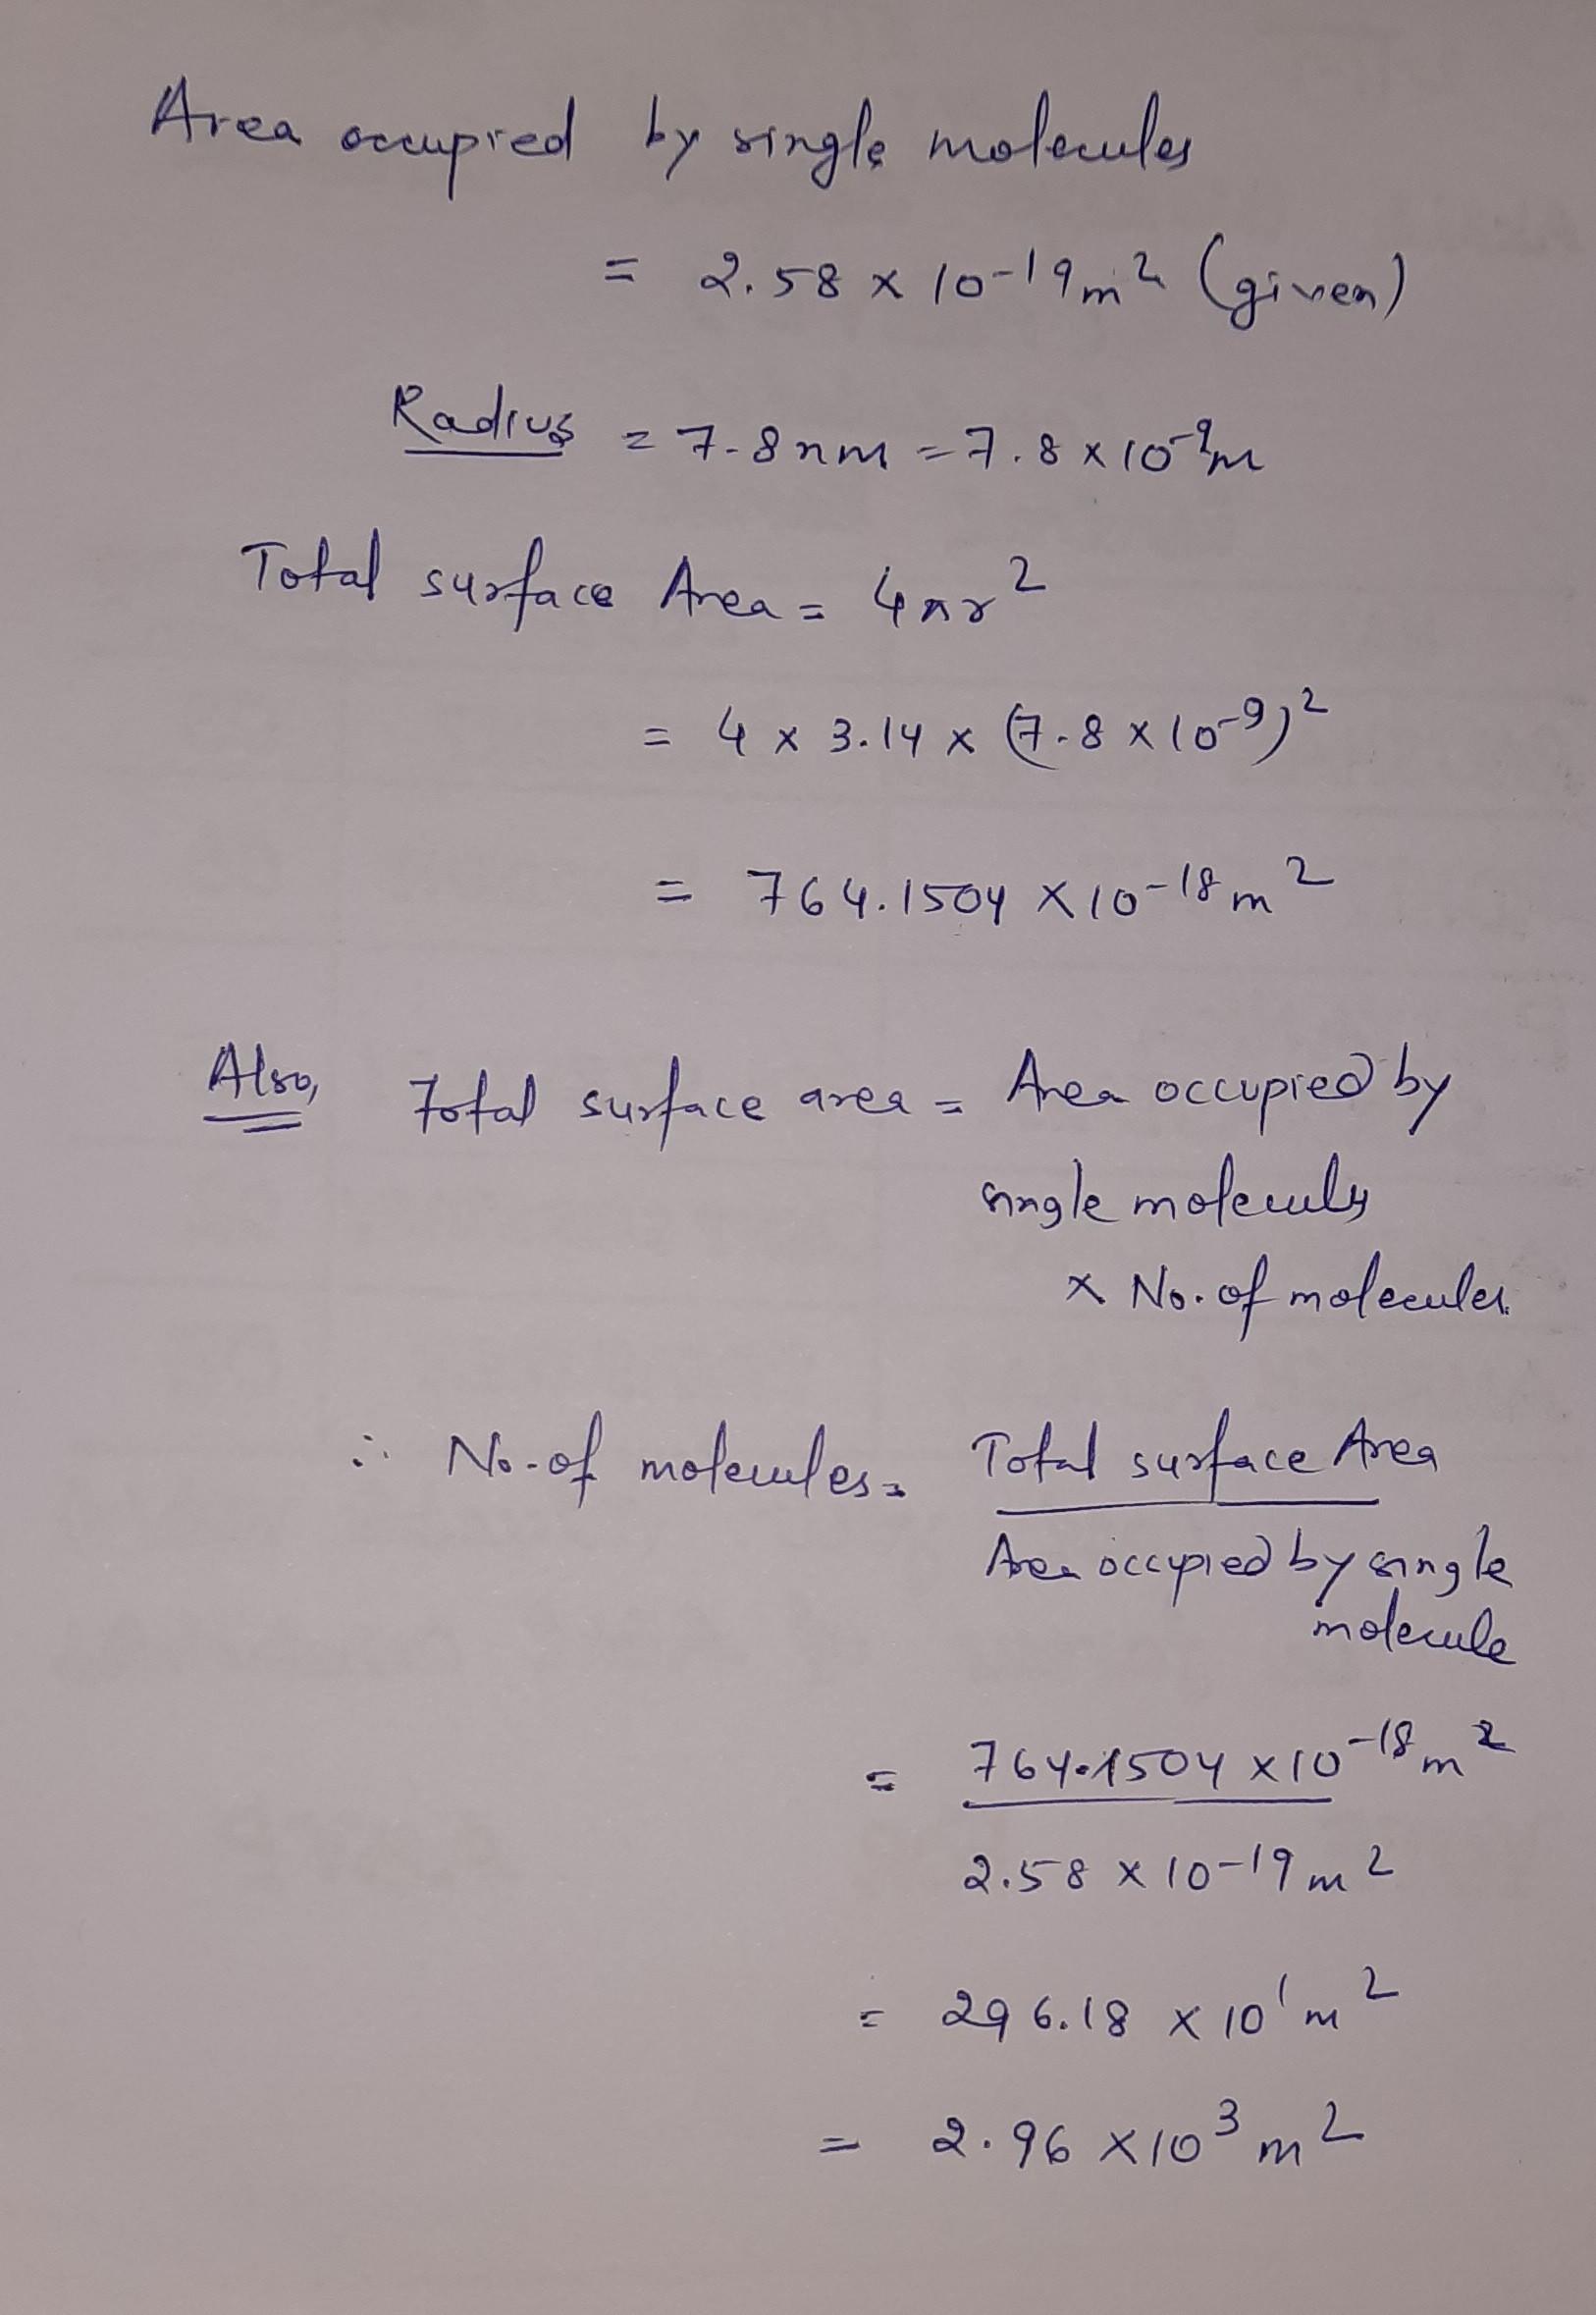 Area occupied by single molecules
= 2.58 x 10-19 m2 (given)
Radius = 7.8 nm = 7.8 x 10-9 m
Total surface Area = 4πr2
= 4 x 3.14 x (7.8 x 10-9)2
= 764.1504 x 10-18 m2
Also, Total surface area = Area occupied by
single molecules
x No. of molecules.
∴ No. of molecules = Total surface Area
Area occupied by single
molecule
= 764.1504 x 10-18 m2
2.58 x 10-19 m2
= 296.18 x 101 m2
= 2.96 x 103 m2